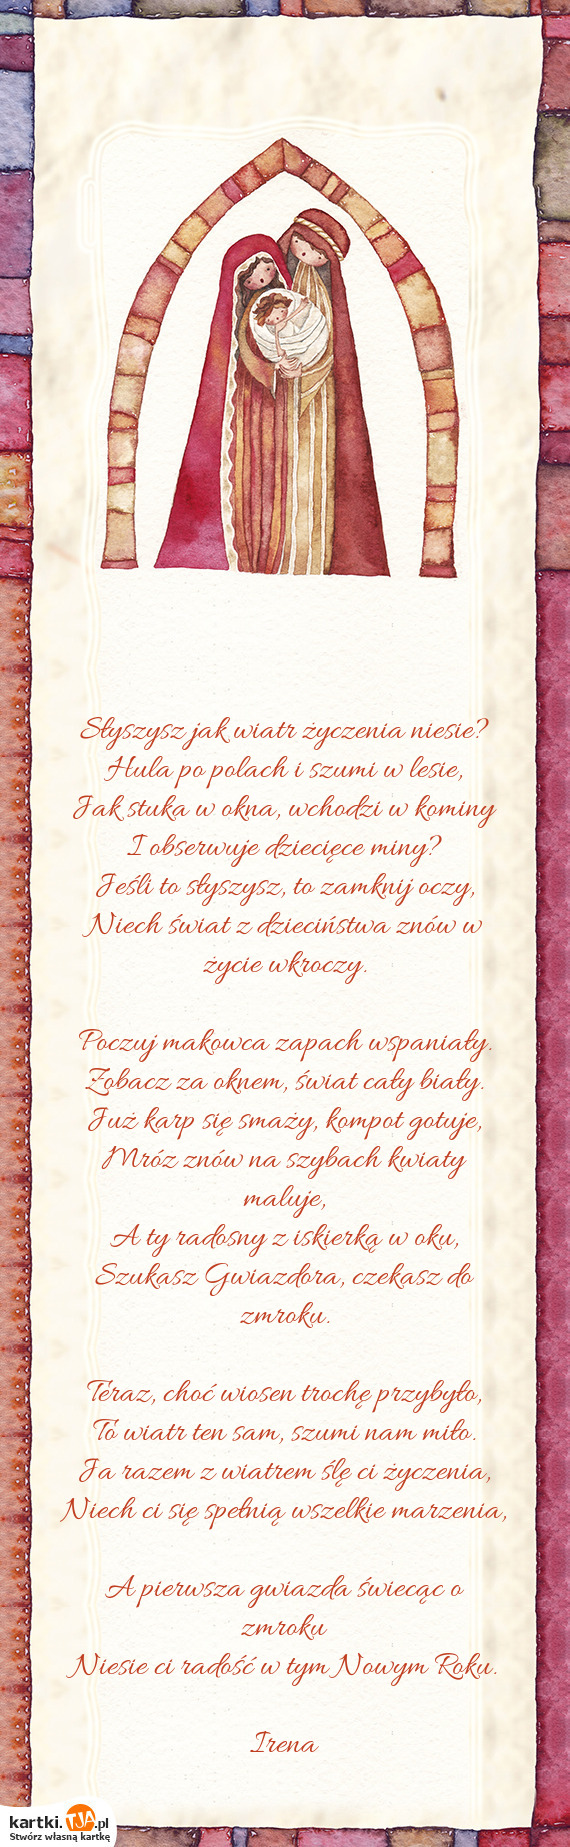 Słyszysz jak wiatr życzenia niesie?
Hula po polach i szumi w lesie,
Jak stuka w okna, wchodzi w kominy
I obserwuje dziecięce miny?
Jeśli to słyszysz, to zamknij oczy,
Niech świat z dzieciństwa znów w
życie wkroczy.

Poczuj makowca zapach wspaniały.
Zobacz za oknem, świat cały biały.
Już karp się smaży, kompot gotuje,
Mróz znów na szybach kwiaty
maluje,
A ty radosny z iskierką w oku,
Szukasz Gwiazdora, czekasz do
zmroku.

Teraz, choć wiosen trochę przybyło,
To wiatr ten sam, szumi nam miło.
Ja razem z wiatrem ślę ci życzenia,
Niech ci się spełnią wszelkie marzenia,

A pierwsza gwiazda świecąc o
zmroku
Niesie ci radość w tym Nowym Roku.

Irena

kartki.TJA.pl
Stwórz własną kartkę